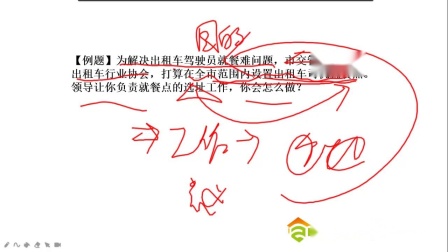 目的
【例题】为解决出租车驾驶员就餐难问题，市交
出租车行业协会，打算在全市范围内设置出租车 点。
领导让你负责就餐点的选址工作，你会怎么做？
工作